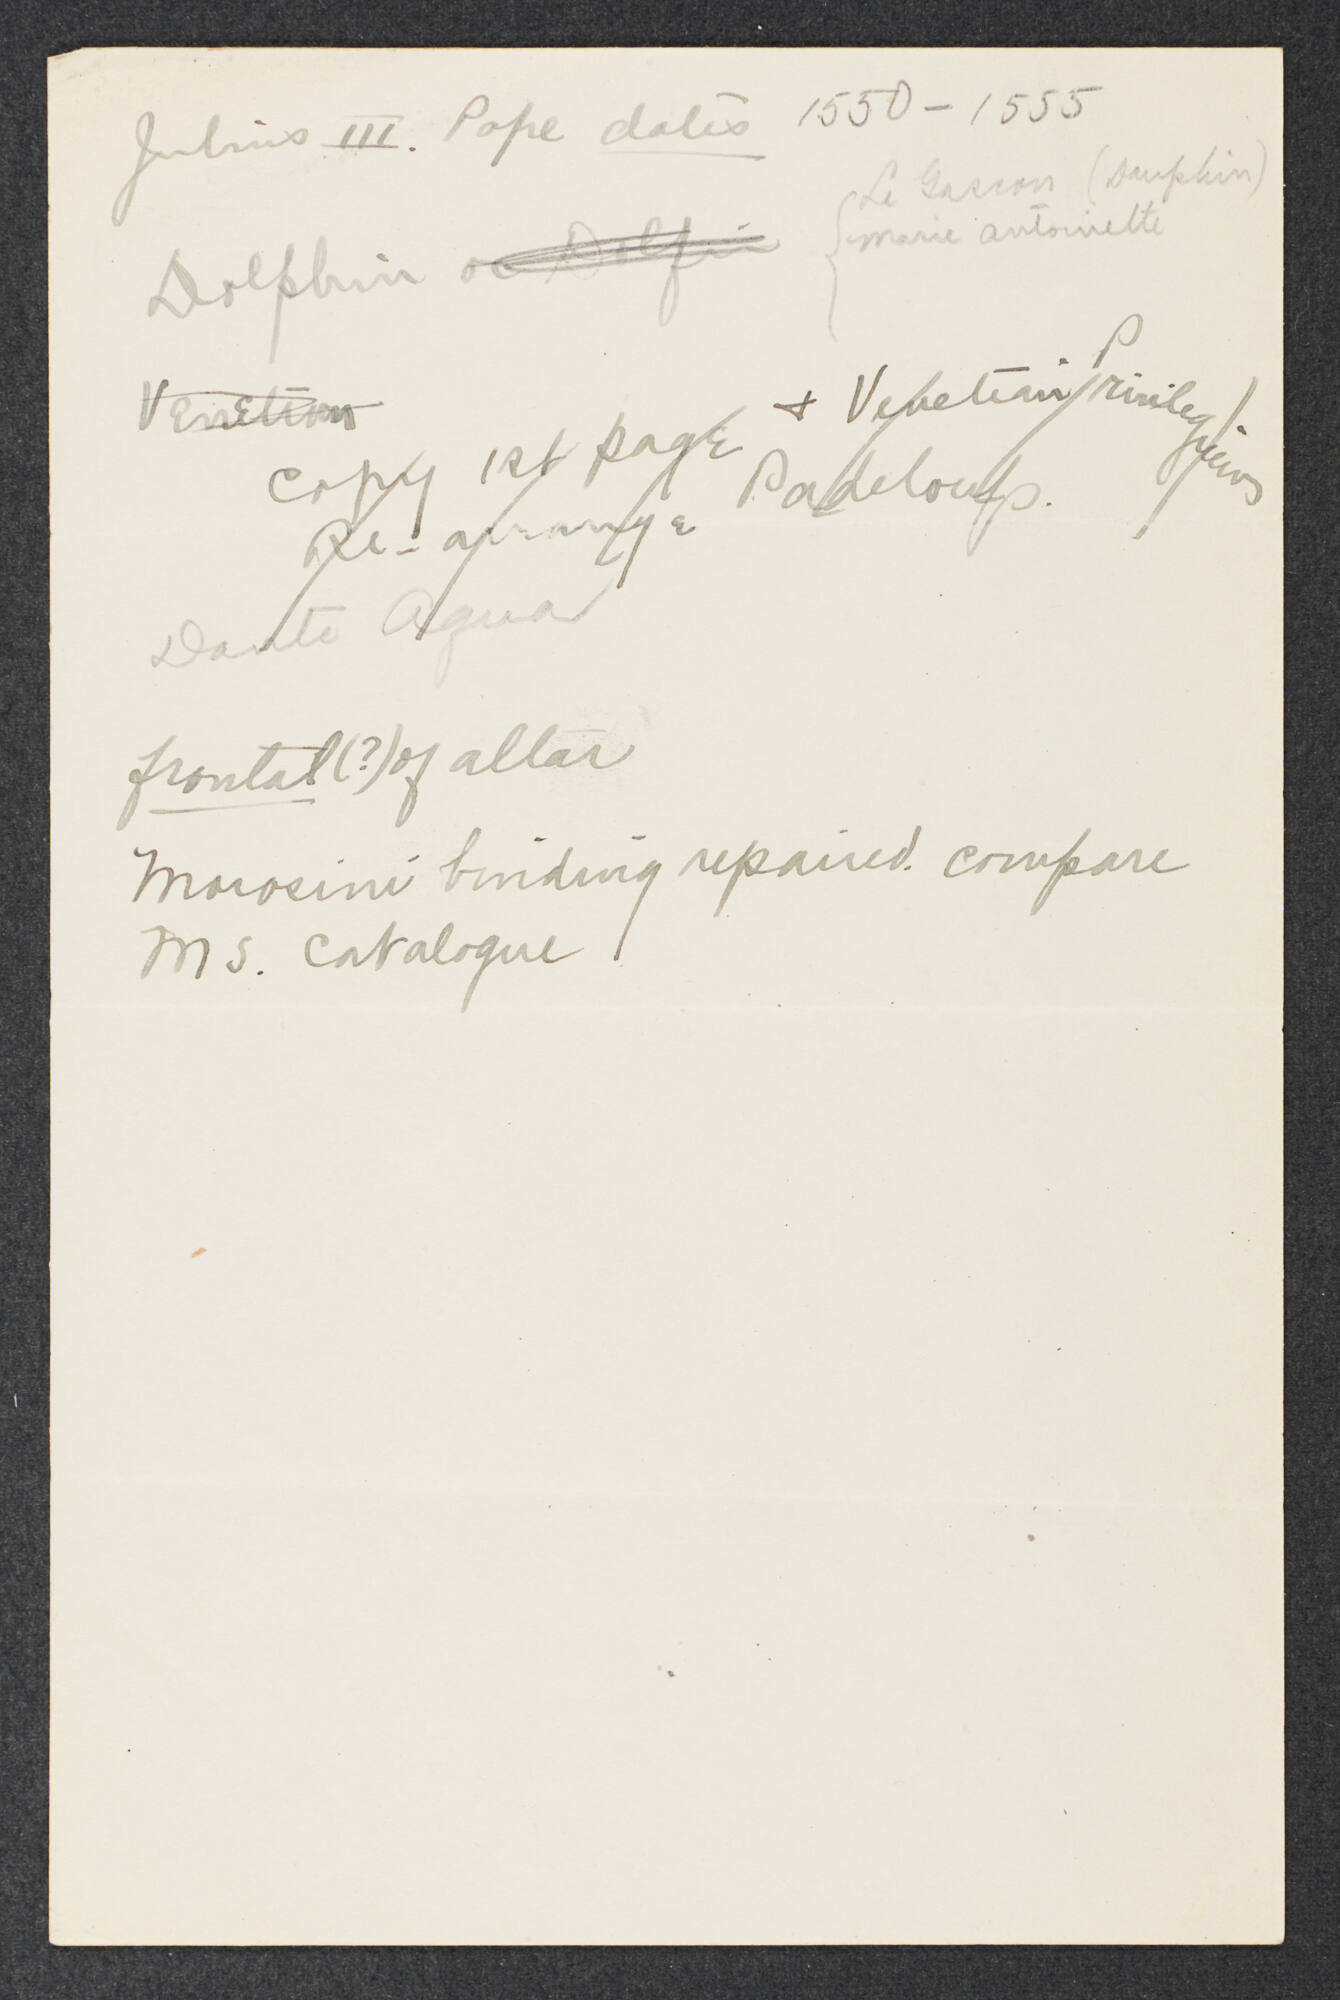 Julius III. Pope dates 1550-1555
Le Gascon (Dauphin)
Marie Antoinette
Dolphin or Dolfin
Venetian
Copy 1st page + Venetian Privilegium
Re-arrange Padeloup.
Dante Aqua
frontal(?) of altar
Morosini binding repaired. compare
MS. Catalogue